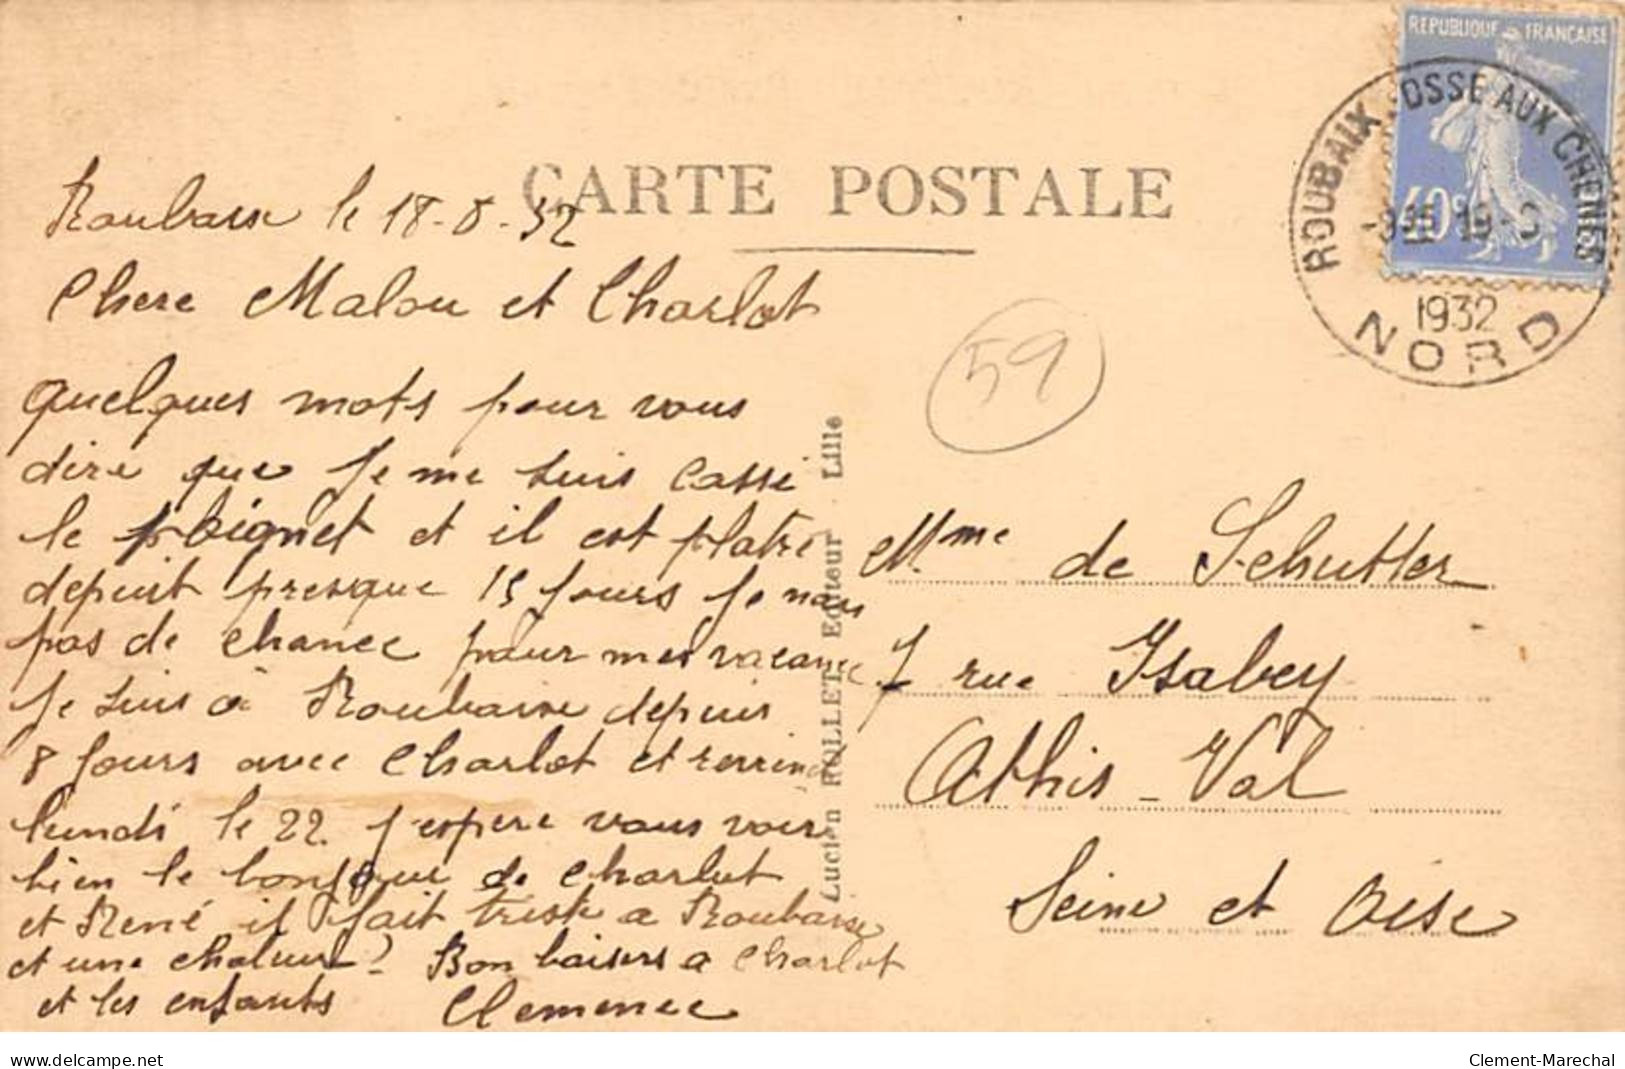 CARTE POSTALE
REPUBLIQUE FRANCAISE
40c
ROUBAIX FOSSE AUX CHENES
1932
NORD
59
Roubaix le 18-8-32
Chere Malou et Charlot
quelques mots pour vous
dire que je me suis cassé
le poignet et il est platré
depuit presque 15 jours je nais
pas de chance pour mes vacance
Je suis à Roubaix depuis
8 jours avec Charlot et
lundi le 22 j'espere vous voir
bien le bonjour de Charlot
et René il fait triste a Roubaix
et une chaleur? Bon baisers a Charlot
et les enfants Clemence
Lucien POLLET, Editeur - Lille
Mme de Schutter
7 rue Isabey
Athis-Val
Seine et Oise
www.delcampe.net
Clement-Marechal